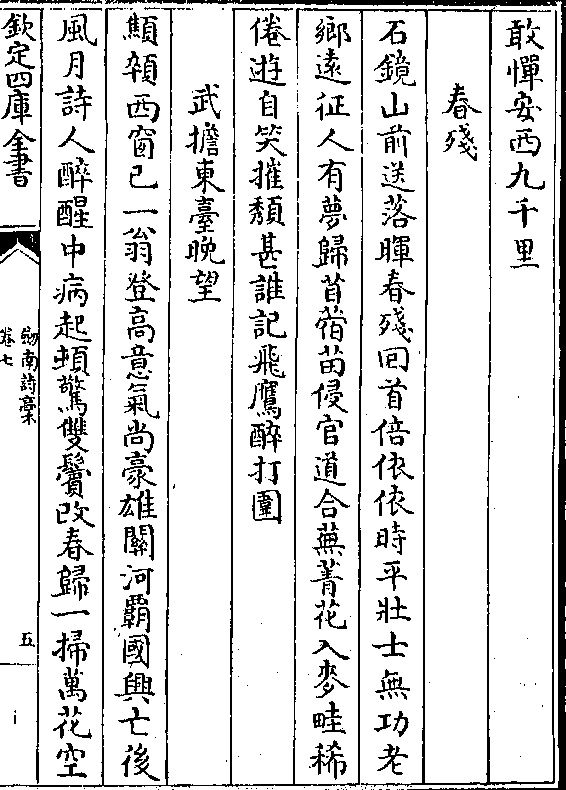 敢憚安西九千里
春殘
石鏡山前送落暉春殘回首倍依依時平壯士無功老
鄉逺征人有夢歸苜蓿苗侵官道合蕪菁花入麥畦稀
倦遊自笑摧頽甚誰記飛鷹醉打圍
武擔東臺晚望
顦顇西窗已一翁登高意氣尚豪雄關河霸國興亡後
風月詩人醉醒中病起頓驚雙鬢改春歸一掃萬花空
欽定四庫全書
劍南詩槀
卷七
五